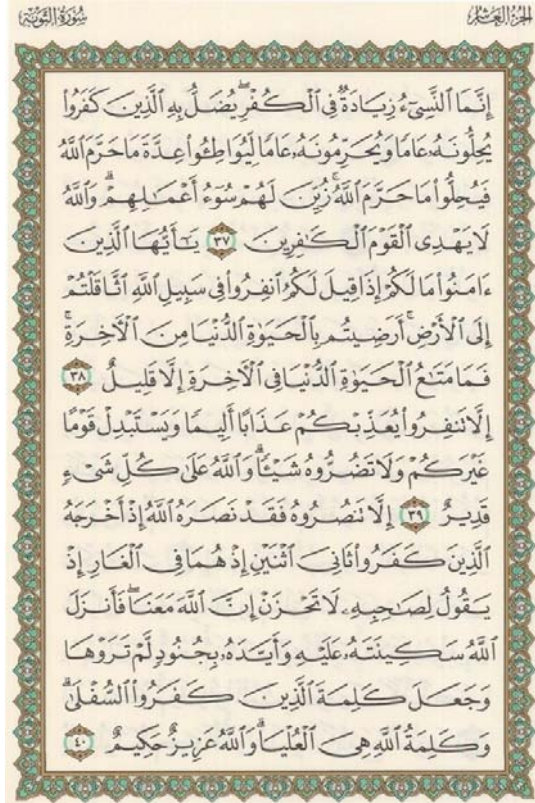 الجزء العاشر
سورة التوبة
إِنَّمَا ٱلنَّسِىٓءُ زِيَادَةٌ فِى ٱلْكُفْرِ ۖ يُضَلُّ بِهِ ٱلَّذِينَ كَفَرُوا۟
يُحِلُّونَهُۥ عَامًا وَيُحَرِّمُونَهُۥ عَامًا لِّيُوَاطِـُٔوا۟ عِدَّةَ مَا حَرَّمَ ٱللَّهُ
فَيُحِلُّوا۟ مَا حَرَّمَ ٱللَّهُ ۚ زُيِّنَ لَهُمْ سُوٓءُ أَعْمَـٰلِهِمْ ۗ وَٱللَّهُ
لَا يَهْدِى ٱلْقَوْمَ ٱلْكَـٰفِرِينَ ٣٧ يَـٰٓأَيُّهَا ٱلَّذِينَ
ءَامَنُوا۟ مَا لَكُمْ إِذَا قِيلَ لَكُمُ ٱنفِرُوا۟ فِى سَبِيلِ ٱللَّهِ ٱثَّاقَلْتُمْ
إِلَى ٱلْأَرْضِ ۚ أَرَضِيتُم بِٱلْحَيَوٰةِ ٱلدُّنْيَا مِنَ ٱلْـَٔاخِرَةِ ۚ
فَمَا مَتَـٰعُ ٱلْحَيَوٰةِ ٱلدُّنْيَا فِى ٱلْـَٔاخِرَةِ إِلَّا قَلِيلٌ ٣٨
إِلَّا تَنفِرُوا۟ يُعَذِّبْكُمْ عَذَابًا أَلِيمًا وَيَسْتَبْدِلْ قَوْمًا
غَيْرَكُمْ وَلَا تَضُرُّوهُ شَيْـًٔا ۗ وَٱللَّهُ عَلَىٰ كُلِّ شَىْءٍ
قَدِيرٌ ٣٩ إِلَّا تَنصُرُوهُ فَقَدْ نَصَرَهُ ٱللَّهُ إِذْ أَخْرَجَهُ
ٱلَّذِينَ كَفَرُوا۟ ثَانِىَ ٱثْنَيْنِ إِذْ هُمَا فِى ٱلْغَارِ إِذْ
يَقُولُ لِصَـٰحِبِهِۦ لَا تَحْزَنْ إِنَّ ٱللَّهَ مَعَنَا ۖ فَأَنزَلَ
ٱللَّهُ سَكِينَتَهُۥ عَلَيْهِ وَأَيَّدَهُۥ بِجُنُودٍ لَّمْ تَرَوْهَا
وَجَعَلَ كَلِمَةَ ٱلَّذِينَ كَفَرُوا۟ ٱلسُّفْلَىٰ ۗ
وَكَلِمَةُ ٱللَّهِ هِىَ ٱلْعُلْيَا ۗ وَٱللَّهُ عَزِيزٌ حَكِيمٌ ٤٠